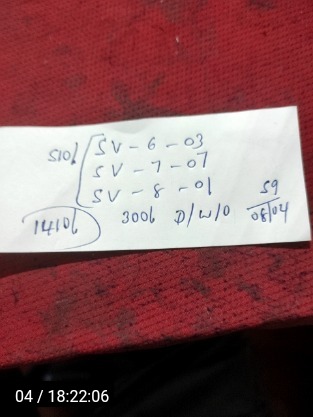 510/ SV - 6 - 03
SV - 7 - 07
SV - 8 - 01
1410/ 300/ D/W/O 59
08/04
04 / 18:22:06